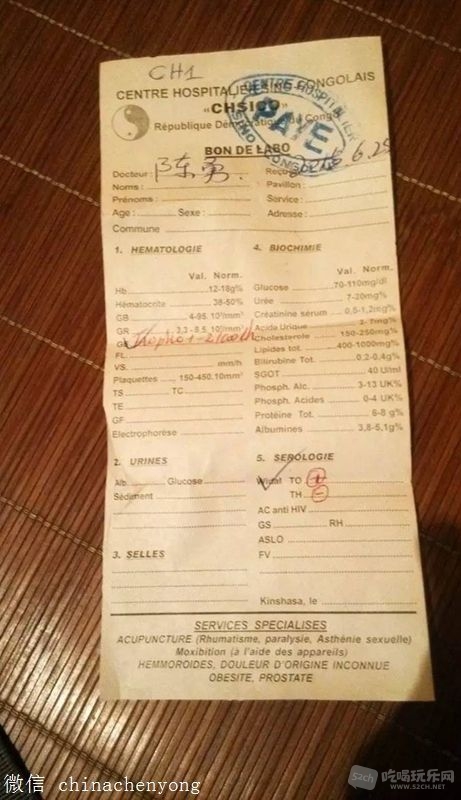 CH1
CENTRE HOSPITALIER SINO-CONGOLAIS
"CHSICO"
République Démocratique du Congo
CENTRE HOSPITALIER
SINO CONGOLAIS
PAYE
BON DE LABO
Docteur : 陈勇.
Reçu
6.25
Noms :
Pavillon :
Prénoms :
Service :
Age : Sexe :
Adresse :
Commune
1. HEMATOLOGIE
Val. Norm.
Hb 12-18g%
Hématocrite 38-50%
GB 4-95.10³/mm³
GR 3,3-5,5.10⁶/mm³
Tropho 1-2/cooth
FL
VS. mm/h
Plaquettes 150-450.10mm³
TS TC
TE
GF
Electrophorèse
2. URINES
Alb. Glucose
Sédiment
3. SELLES
4. BIOCHIMIE
Val. Norm.
Glucose 70-110mg/dl
Urée 7-20mg%
Créatinine sérum 0,5-1,2mg%
Acide Urique 2-7mg%
Cholesterole 150-250mg%
Lipides tot. 400-1000mg%
Bilirubine Tot. 0,2-0,4g%
SGOT 40 U/ml
Phosph. Alc. 3-13 UK%
Phosph. Acides 0-4 UK%
Protéine Tot. 6-8 g%
Albumines 3,8-5,1g%
5. SEROLOGIE
Widal TO
TH -
AC anti HIV
GS RH
ASLO
FV
Kinshasa, le
SERVICES SPECIALISES
ACUPUNCTURE (Rhumatisme, paralysie, Asthénie sexuelle)
Moxibition (à l'aide des appareils)
HEMMOROIDES, DOULEUR D'ORIGINE INCONNUE
OBESITE, PROSTATE
微信 chinachenyong
Szch 吃喝玩乐网
www.SZCH.NET